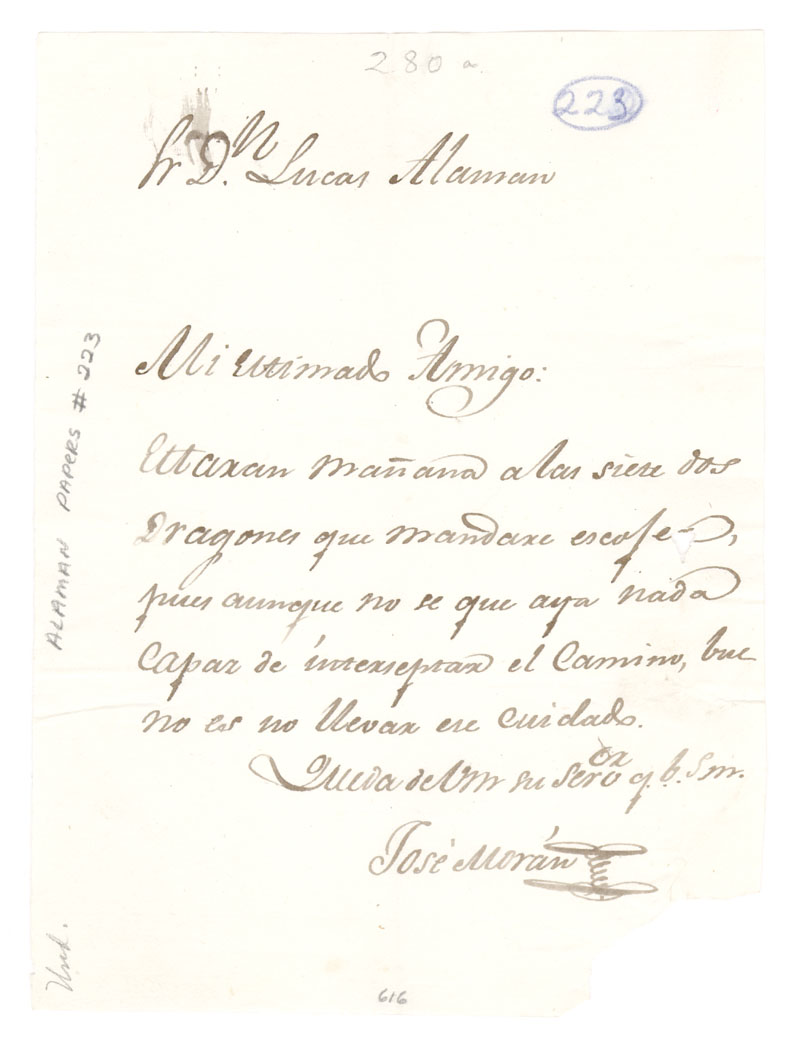 280 a.
223
Sr D.n Lucas Alaman
Mi Estimado Amigo:
Estaran mañana a las siete dos
Dragones que mandare escojer,
pues aunque no se que aya nada
capaz de interseptar el camino, bue
no es no llevar ese cuidado.
Queda de Vm su seror q. b. s m.
José Morán
ALAMAN PAPERS # 223
Und.
616